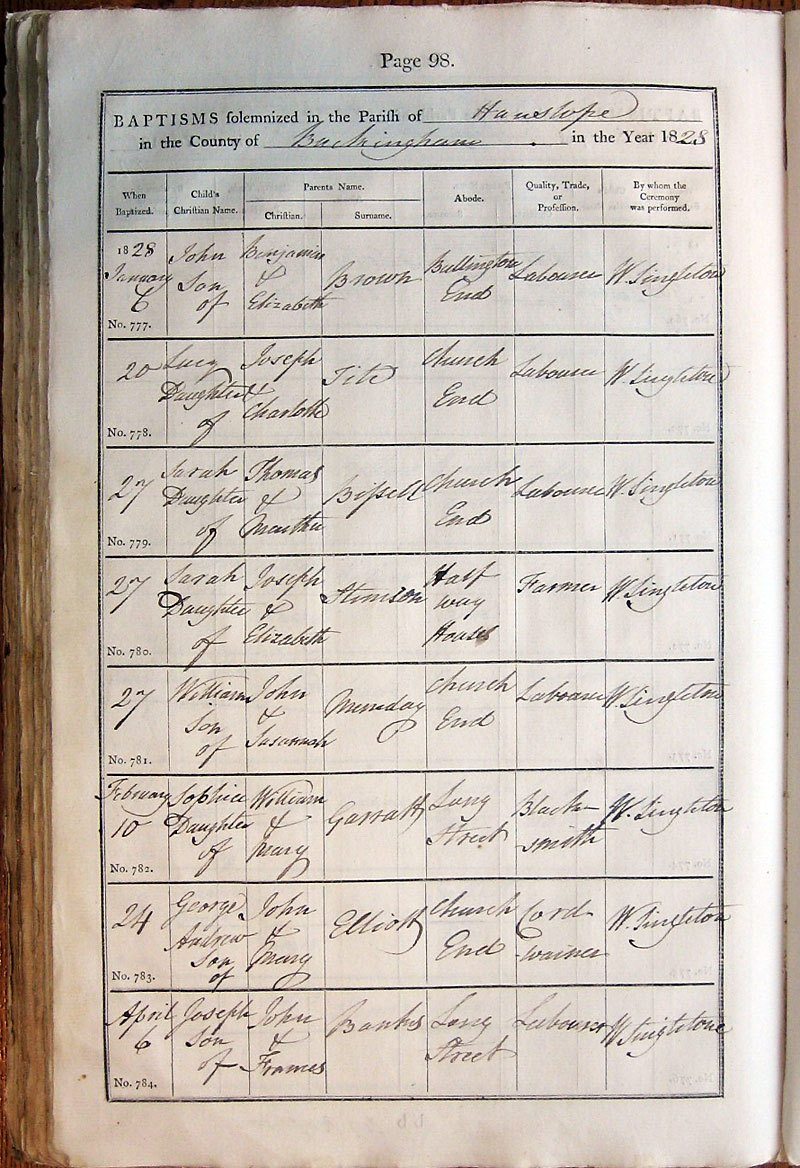 Page 98.
BAPTISMS solemnized in the Parish of Hanslope
in the County of Buckingham in the Year 1828
When Baptized. Child's Christian Name. Parents Name. Christian. Surname. Abode. Quality, Trade, or Profession. By whom the Ceremony was performed.
1828 January 6 John Son of Benjamin & Elizabeth Brown Bullington End Labourer W. Singleton
No. 777.
20 Lucy Daughter of Joseph & Charlotte Tite Church End Labourer W. Singleton
No. 778.
27 Sarah Daughter of Thomas & Martha Bissell Church End Labourer W. Singleton
No. 779.
27 Sarah Daughter of Joseph & Elizabeth Stimson Half way House Farmer W. Singleton
No. 780.
27 William Son of John & Susannah Church End Labourer W. Singleton
No. 781.
February 10 Sophia Daughter of William & Mary Garratt Long Street Black-smith W. Singleton
No. 782.
24 George Andrew Son of John & Mary Elliott Church End Cord-wainer W. Singleton
No. 783.
April 6 Joseph Son of John & Frances Banks Long Street Labourer W. Singleton
No. 784.